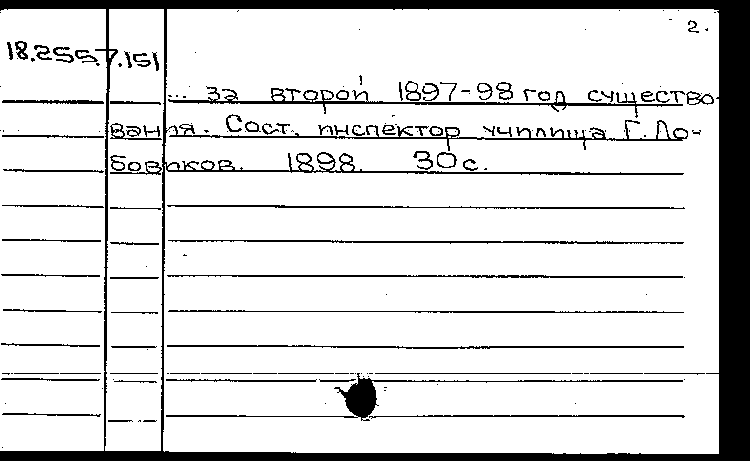 2.
18.255.7.151
... за второй 1897-98 год существо-
вания. Сост. инспектор училища Г. Ло-
бовиков. 1898. 30 с.